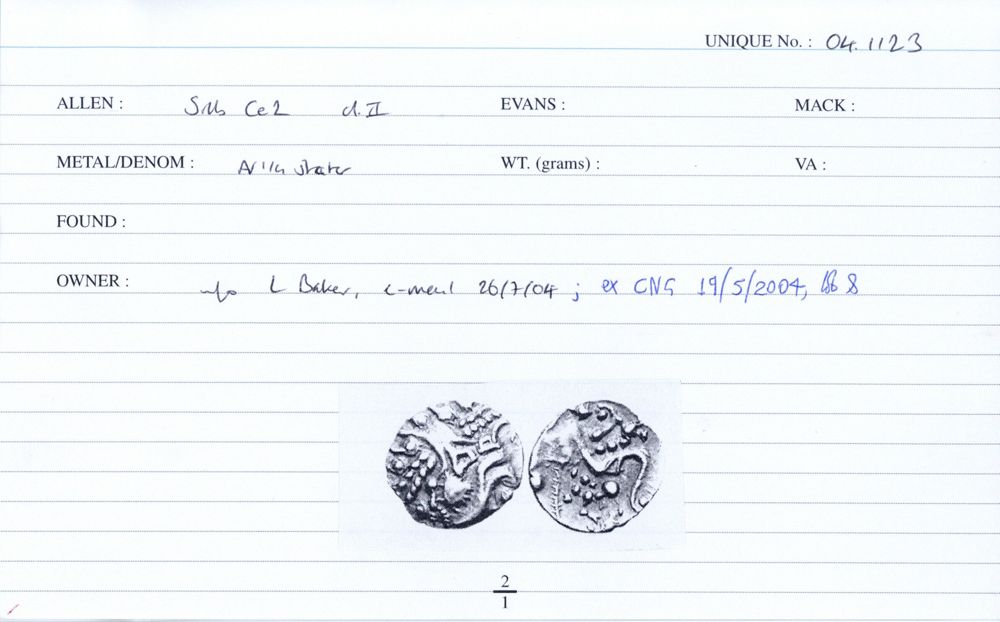 UNIQUE No. : 04.1123
ALLEN : Sills Ce2 cl. II EVANS : MACK :
METAL/DENOM : 1/4 stater WT. (grams) : VA :
FOUND :
OWNER : info L Baker, e-mail 26/7/04 ; ex CNG 19/5/2004, 8
2
1